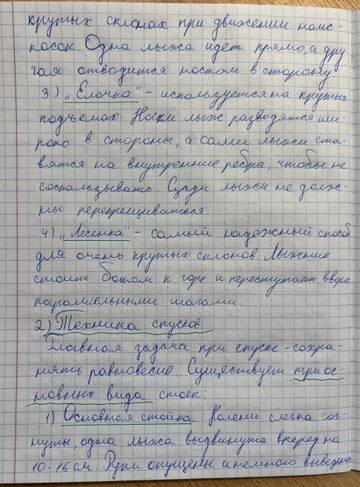 крутых склонах при движении наис-
косок. Одна лыжа идет прямо, а дру-
гая отводится носком в сторону.
3) „Елочка" - используется на крутых
подъемах. Носки лыж разводятся ши
роко в стороны, а сами лыжи ста-
вятся на внутренние ребра, чтобы не
соскальзывать. Сзади лыжи не долж-
ны перекрещиваться.
4) „Лесенка" - самый надежный способ
для очень крутых склонов. Лыжник
стоит боком к горе и переступает вверх
параллельными шагами.
2) Техника спусков
Главная задача при спуске - сохра-
нять равновесие. Существует три ос-
новных вида стоек:
1) Основная стойка. Колени слегка сог-
нуты, одна лыжа выдвинута вперед на
10-15 см. Руки опущены и немного выведены